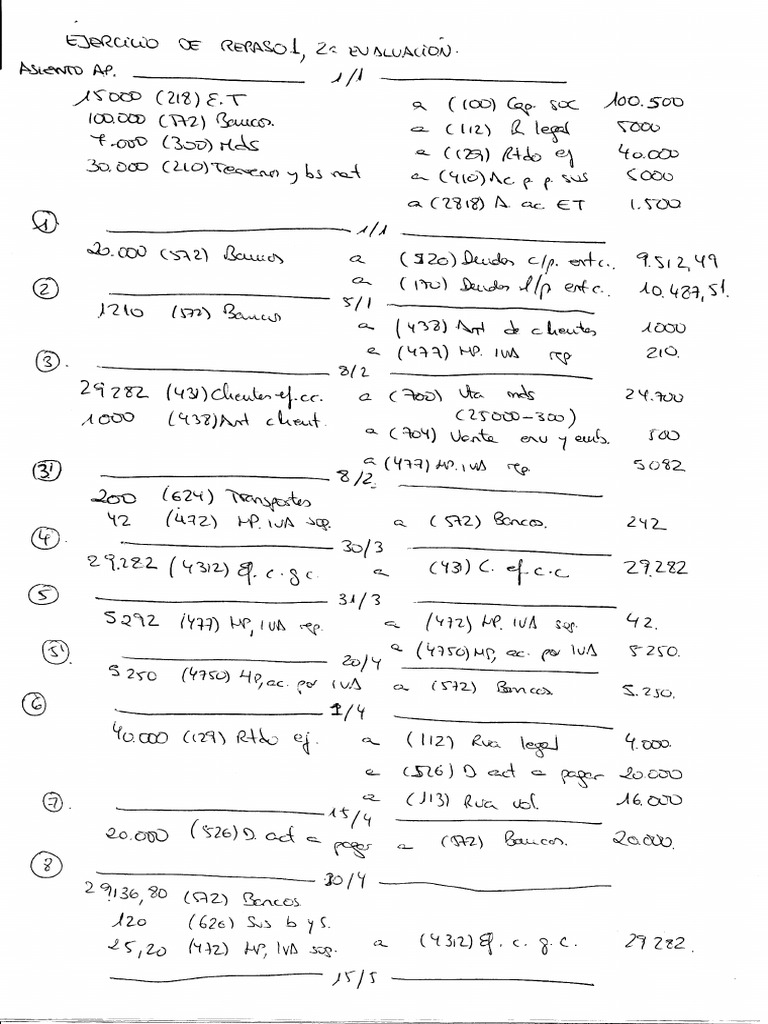 EJERCICIO DE REPASO 1, 2ª EVALUACIÓN.
ASIENTO AP. 1/1
15000 (218) E.T a (100) Cap. soc 100.500
100.000 (572) Bancos. a (112) R legal 5000
7.000 (300) Mds a (129) Rtdo ej 40.000
30.000 (210) Terrenos y bs nat a (410) Ac p. p. sus 5000
a (2818) A. ac ET 1.500
1 1/1
20.000 (572) Bancos a (520) Deudas c/p. ent c. 9.512,49
a (170) Deudas l/p ent c. 10.487,51.
2 5/1
1210 (572) Bancos a (438) Ant de clientes 1000
a (477) HP. IVA rep 210.
3. 8/2
29.282 (431) Clientes ef. cc. a (700) Vta mds 24.700
1000 (438) Ant client. (25000-300)
a (704) Venta env y emb. 500
a (477) HP. IVA rep 5082
3' 8/2.
200 (624) Transportes
42 (472) HP. IVA sop. a (572) Bancos. 242
4. 30/3
29.282 (4312) Ef. c. g. c. a (431) C. ef. c. c 29.282
5 31/3
5292 (477) HP, IVA rep. a (472) HP. IVA sop. 42.
a (4750) HP, ac. por IVA 5250.
5'. 20/4
5250 (4750) HP, ac. por IVA a (572) Bancos 5.250.
6 1/4
40.000 (129) Rtdo ej. a (112) Rva legal 4.000.
a (526) D act a pagar 20.000
a (113) Rva vol. 16.000
7. 15/4
20.000 (526) D. act a pagar a (572) Bancos. 20.000.
8 30/4
29.136,80 (572) Bancos
120 (626) Sus b y s.
25,20 (472) HP, IVA sop. a (4312) Ef. c. g. c. 29.282.
15/5